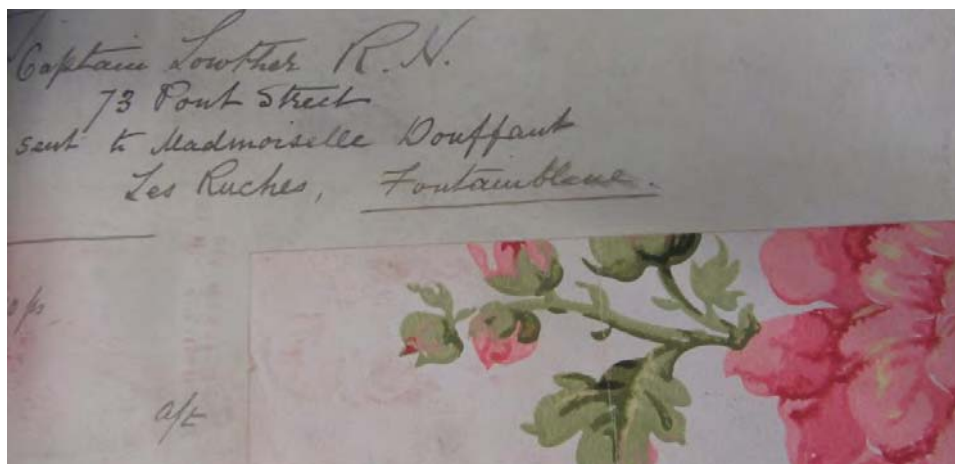 Captain Lowther R.N.
73 Pont Street
sent to Madmoiselle Douffant
Les Ruches, Fontainbleue.
a/c